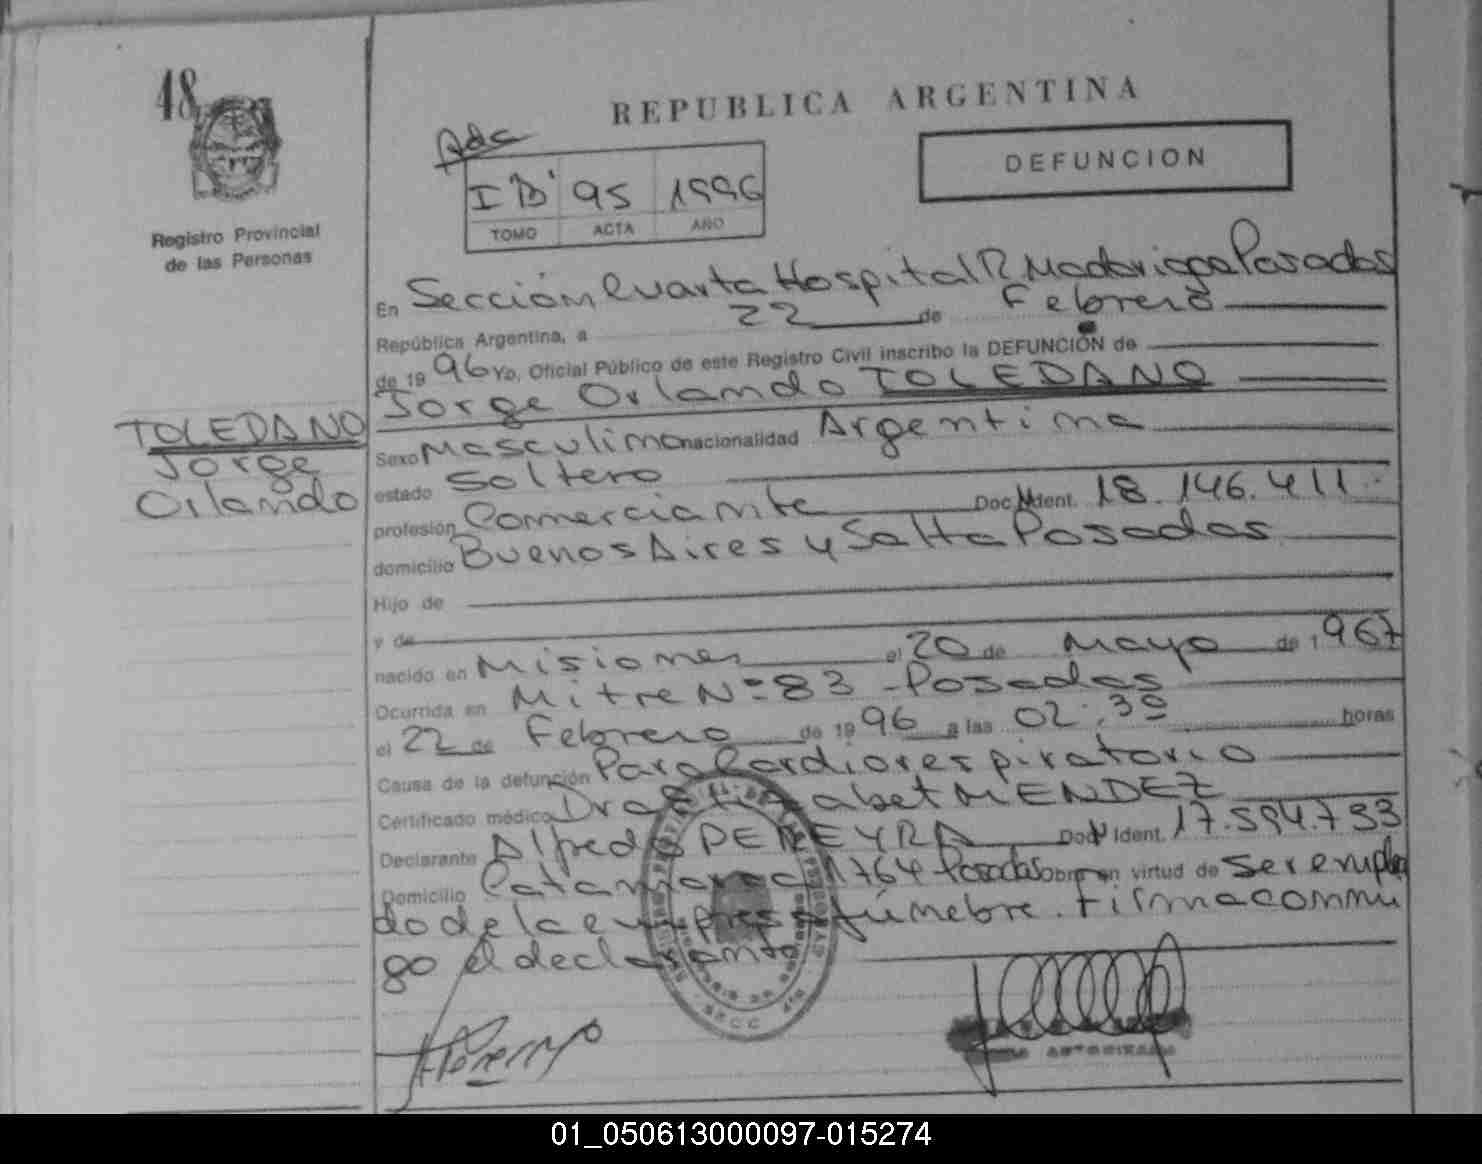 48
REPUBLICA ARGENTINA
Adc
DEFUNCION
95 1996
TOMO ACTA AÑO
Registro Provincial
de las Personas
En Sección Cuarta Hospital R Madariaga Posadas
República Argentina, a 22 de Febrero
de 1996 Yo, Oficial Público de este Registro Civil inscribo la DEFUNCIÓN de
Jorge Orlando TOLEDANO
TOLEDANO
Jorge
Orlando
Sexo Masculino nacionalidad Argentina
estado Soltero
profesión Comerciante Doc N Ident. 18.146.411
domicilio Buenos Aires y Salta Posadas
Hijo de
y de
nacido en Misiones el 20 de Mayo de 1967
Ocurrida en Mitre Nº 83 - Posadas
el 22 de Febrero de 1996 a las 02:30 horas
Causa de la defunción Paro Cardiorespiratorio
Certificado médico Dra MENDEZ
Declarante Alfredo PEREYRA Doc N Ident. 17.594.733
Domicilio Catamarca 1764 Posadas obra en virtud de Ser emplea
do de la empresa fúnebre. Firma conmi
go el declarante
SECC. 4ta
AUTORIZADA
01_050613000097-015274